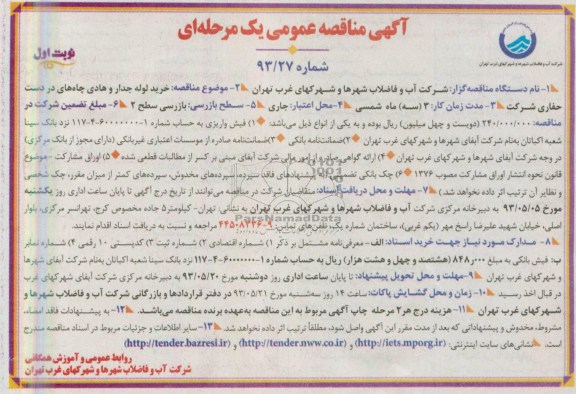 آگهی مناقصه عمومی یک مرحله‌ای
شماره ۹۳/۲۷
نوبت اول
شرکت آب و فاضلاب شهرها و شهرکهای غرب تهران
۱- نام دستگاه مناقصه‌گزار: شرکت آب و فاضلاب شهرها و شهرکهای غرب تهران ۲- موضوع مناقصه: خرید لوله جدار و هادی چاه‌های در دست
حفاری شرکت ۳- مدت زمان کار: ۳ (سه) ماه شمسی ۴- محل اعتبار: جاری ۵- سطح بازرسی: بازرسی سطح ۲ ۶- مبلغ تضمین شرکت در
مناقصه: ۲۴۰/۰۰۰/۰۰۰ (دویست و چهل میلیون) ریال بوده و به یکی از انواع ذیل می‌باشد: ۱) فیش واریزی به حساب شماره ۱-۶۰۰۰۰۰۰-۴-۱۱۷ نزد بانک سینا
شعبه اکباتان به‌نام شرکت آبفای شهرها و شهرکهای غرب تهران ۲) ضمانت‌نامه بانکی ۳) ضمانت‌نامه صادره از موسسات اعتباری غیربانکی (دارای مجوز از بانک مرکزی)
در وجه شرکت آبفای شهرها و شهرکهای غرب تهران ۴) ارائه گواهی صادره از امور مالی شرکت آبفای مبنی بر کسر از مطالبات قطعی شده ۵) اوراق مشارکت - موضوع
قانون نحوه انتشار اوراق مشارکت مصوب ۱۳۷۶ ۶) چک بانکی تضمین پیشنهادهای فاقد سپرده، سپرده‌های مخدوش، سپرده‌های کمتر از میزان مقرر، چک شخصی
و نظایر آن ترتیب اثر داده نخواهد شد.) ۷- مهلت و محل دریافت اسناد: متقاضیان شرکت در مناقصه می‌توانند از تاریخ درج آگهی تا پایان ساعت اداری روز یکشنبه
مورخ ۹۳/۰۵/۰۵ به دبیرخانه مرکزی شرکت آب و فاضلاب شهرها و شهرکهای غرب تهران به نشانی: تهران- کیلومتر ۵ جاده مخصوص کرج، تهرانسر مرکزی، بلوار
اصلی، خیابان شهید علیرضا راسخ مهر (یکم غربی)، ساختمان شماره یک، تلفن‌های تماس: ۹-۴۴۵۰۸۳۳۶ مراجعه و نسبت به دریافت اسناد اقدام نمایند.
۸- مدارک مورد نیاز جهت خرید اسناد: الف- معرفی‌نامه مشتمل بر ذکر ۱) شماره اقتصادی ۲) شماره ثبت ۳) کدپستی ۱۰ رقمی ۴) شماره نمابر
ب: فیش بانکی به مبلغ ۸۴۸/۰۰۰ (هشتصد و چهل و هشت هزار) ریال به حساب شماره ۱-۶۰۰۰۰۰۰-۴-۱۱۷ نزد بانک سینا شعبه اکباتان به‌نام شرکت آبفای شهرها
و شهرکهای غرب تهران ۹- مهلت و محل تحویل پیشنهاد: تا پایان ساعت اداری روز دوشنبه مورخ ۹۳/۰۵/۲۰ به دبیرخانه مرکزی شرکت آبفای شهرها و شهرکهای غرب تهران
در قبال اخذ رسید ۱۰- زمان و محل گشایش پاکات: ساعت ۱۴ روز سه‌شنبه مورخ ۹۳/۰۵/۲۱ در دفتر قراردادها و بازرگانی شرکت آب و فاضلاب شهرها و
شهرکهای غرب تهران ۱۱- هزینه درج هر ۲ مرحله چاپ آگهی مربوط به این مناقصه به‌عهده برنده مناقصه می‌باشد. ۱۲- به پیشنهادات فاقد امضاء،
مشروط، مخدوش و پیشنهاداتی که بعد از مدت مقرر این آگهی واصل شود، مطلقاً ترتیب اثر داده نخواهد شد ۱۳- سایر اطلاعات و جزئیات مربوط در اسناد مناقصه مندرج
است. نشانی‌های سایت اینترنتی: (http://iets.mporg.ir) و (http://tender.nww.co.ir) و (http://tender.bazresi.ir)
روابط عمومی و آموزش همگانی
شرکت آب و فاضلاب شهرها و شهرکهای غرب تهران
ParsNamadData